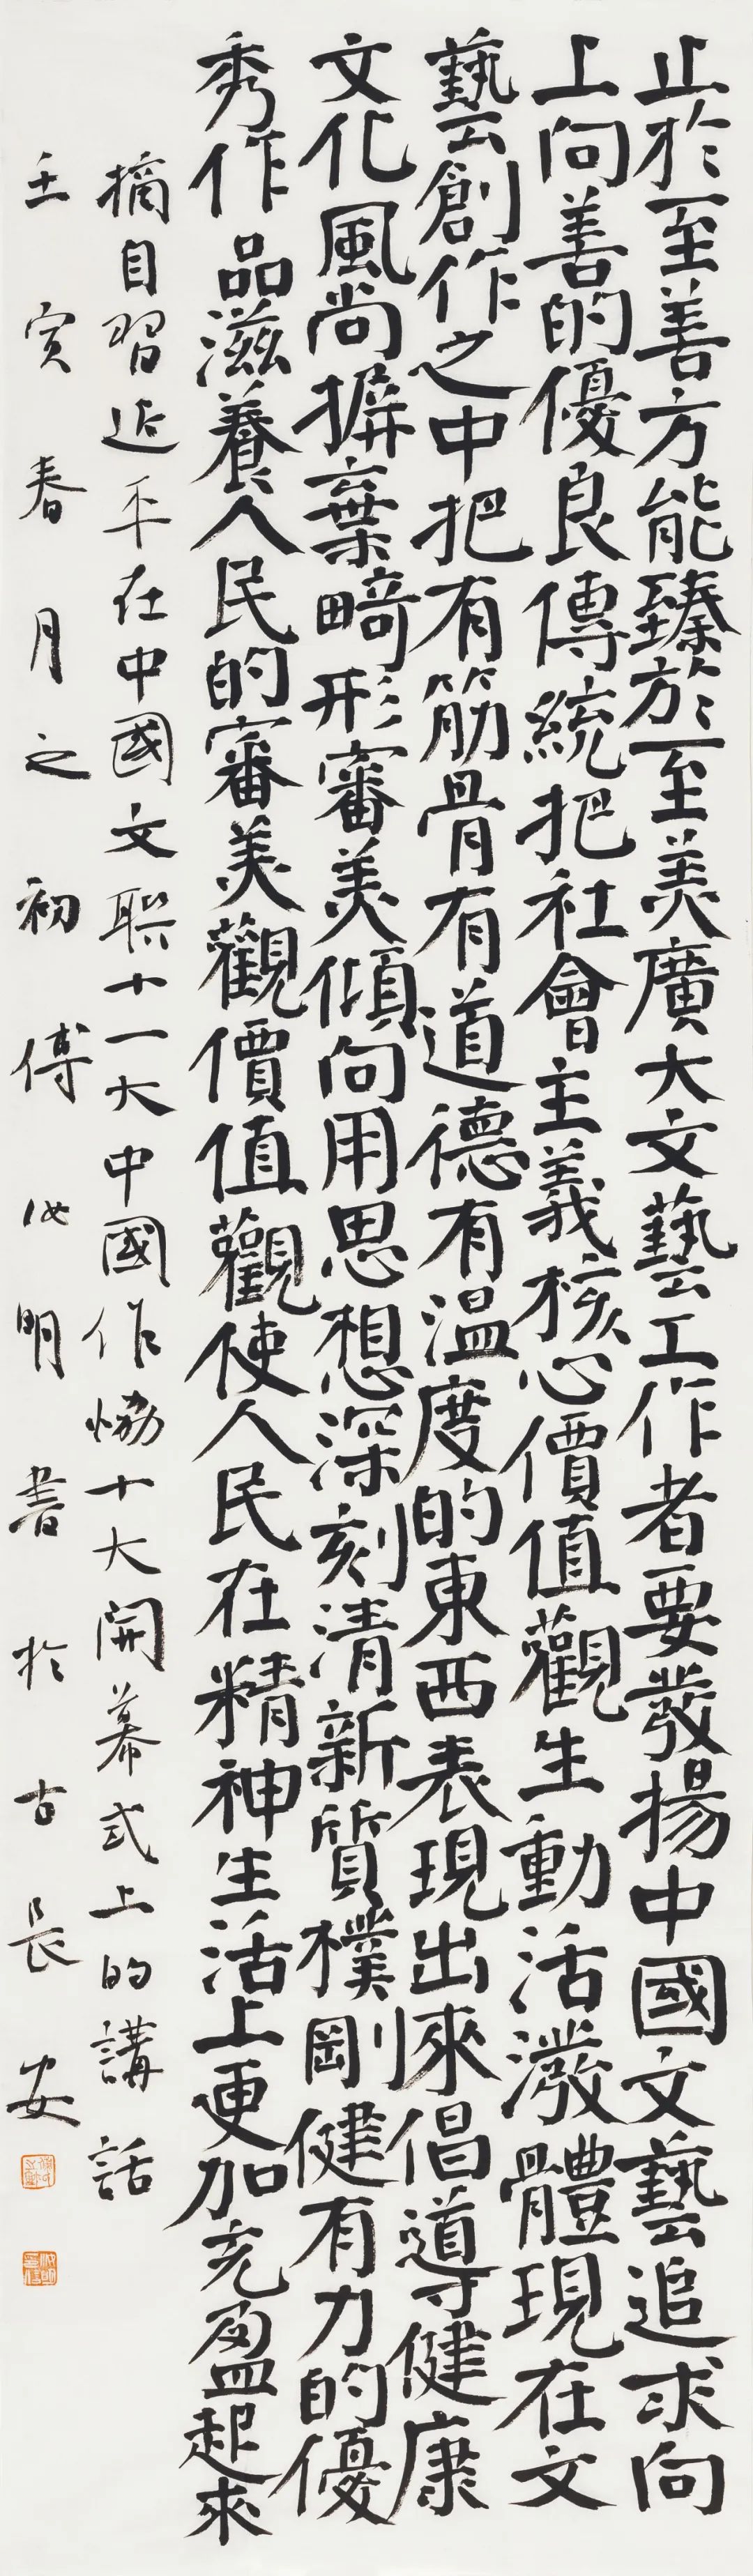 止於至善方能臻於至美廣大文藝工作者要發揚中國文藝追求向
上向善的優良傳統把社會主義核心價值觀生動活潑體現在文
藝創作之中把有筋骨有道德有溫度的東西表現出來倡導健康
文化風尚摒棄畸形審美傾向用思想深刻清新質樸剛健有力的優
秀作品滋養人民的審美觀價值觀使人民在精神生活上更加充盈起來
摘自習近平在中國文聯十一大中國作協十大開幕式上的講話
壬寅春月之初傅汝明書於古長安